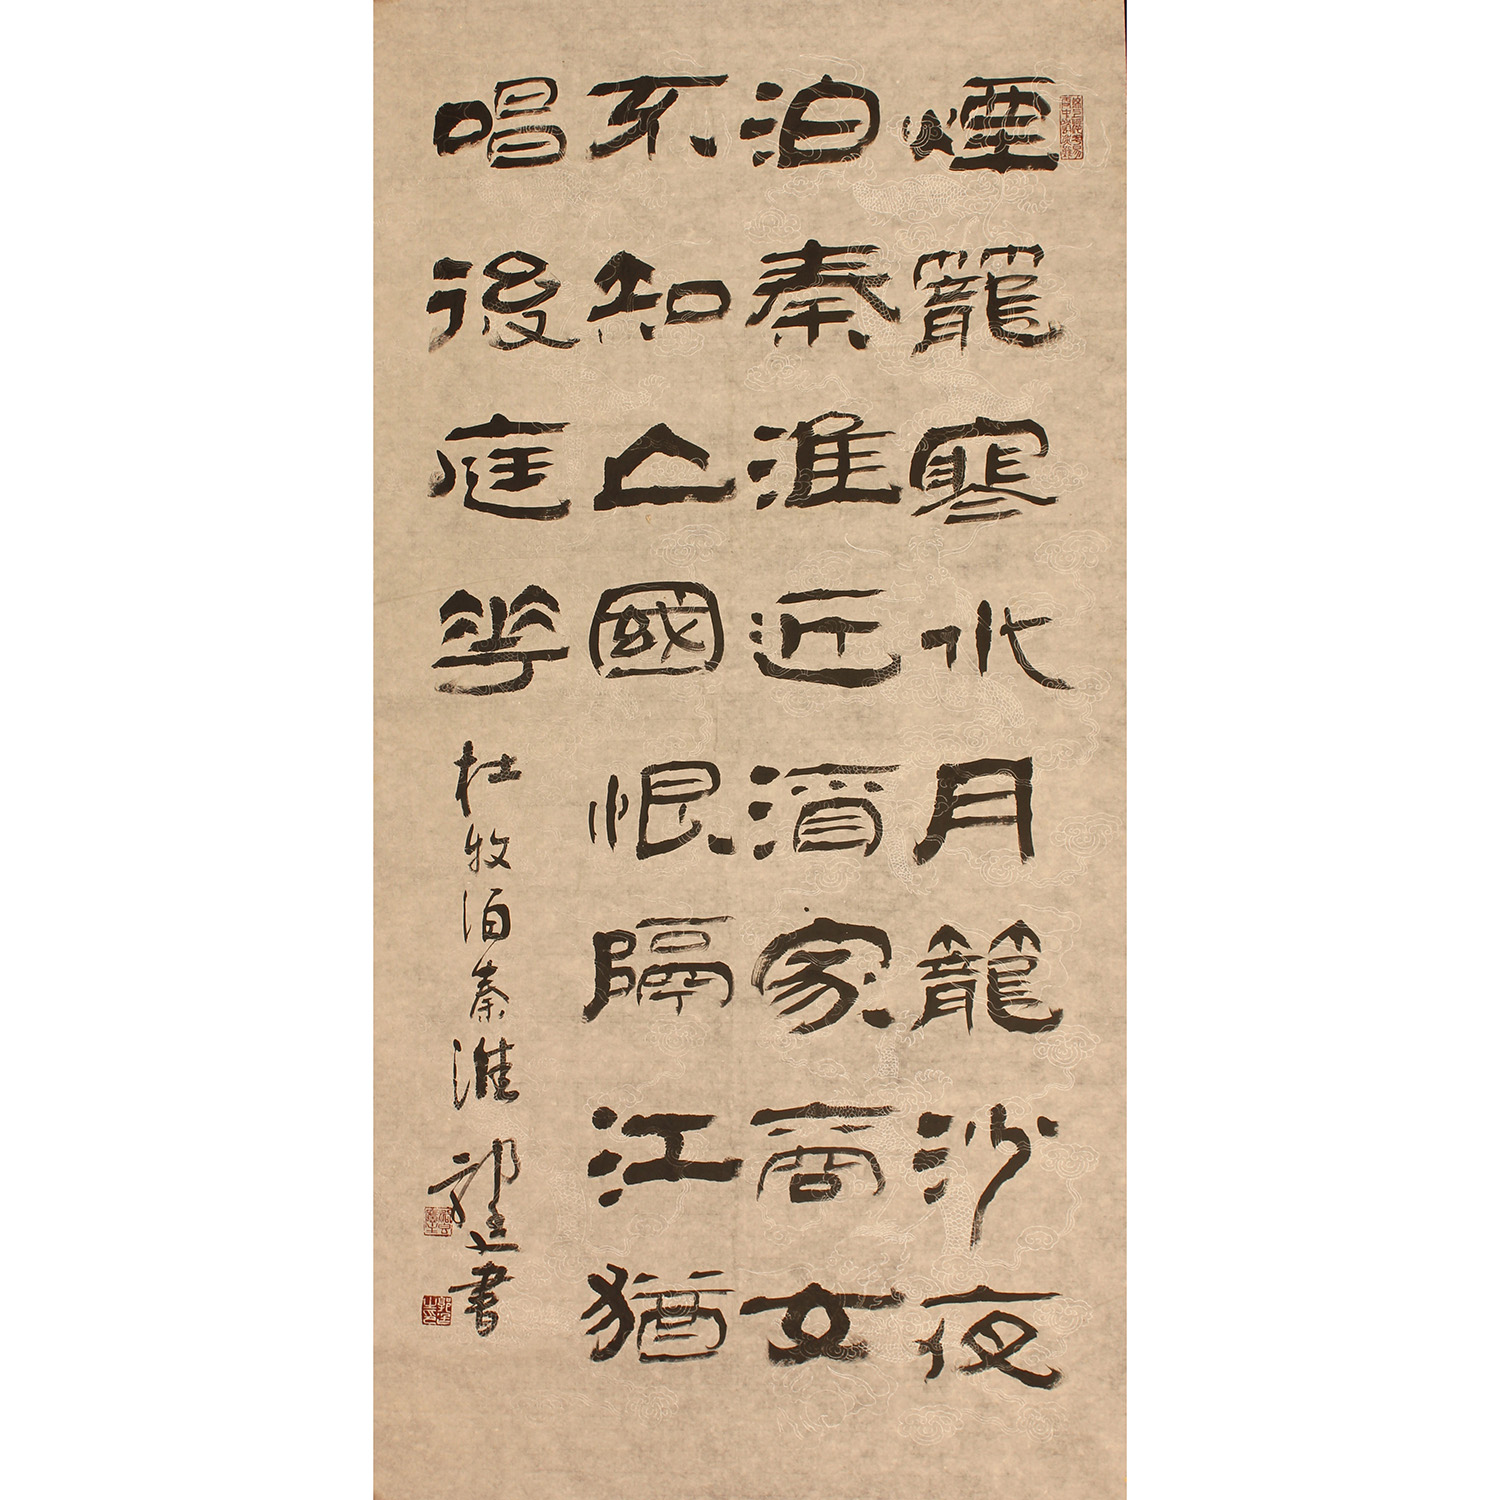 煙籠寒水月籠沙夜
泊秦淮近酒家商女
不知亡國恨隔江猶
唱後庭花
杜牧泊秦淮
書